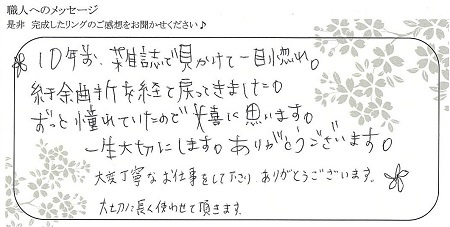 職人へのメッセージ
是非 完成したリングのご感想をお聞かせください♪
10年前、雑誌で見かけて一目惚れ。
紆余曲折を経て戻ってきました。
ずっと憧れていたので光喜に思います。
一生大切にします。ありがとうございます。
大変丁寧なお仕事をして下さり ありがとうございます。
大切に長く使わせて頂きます。